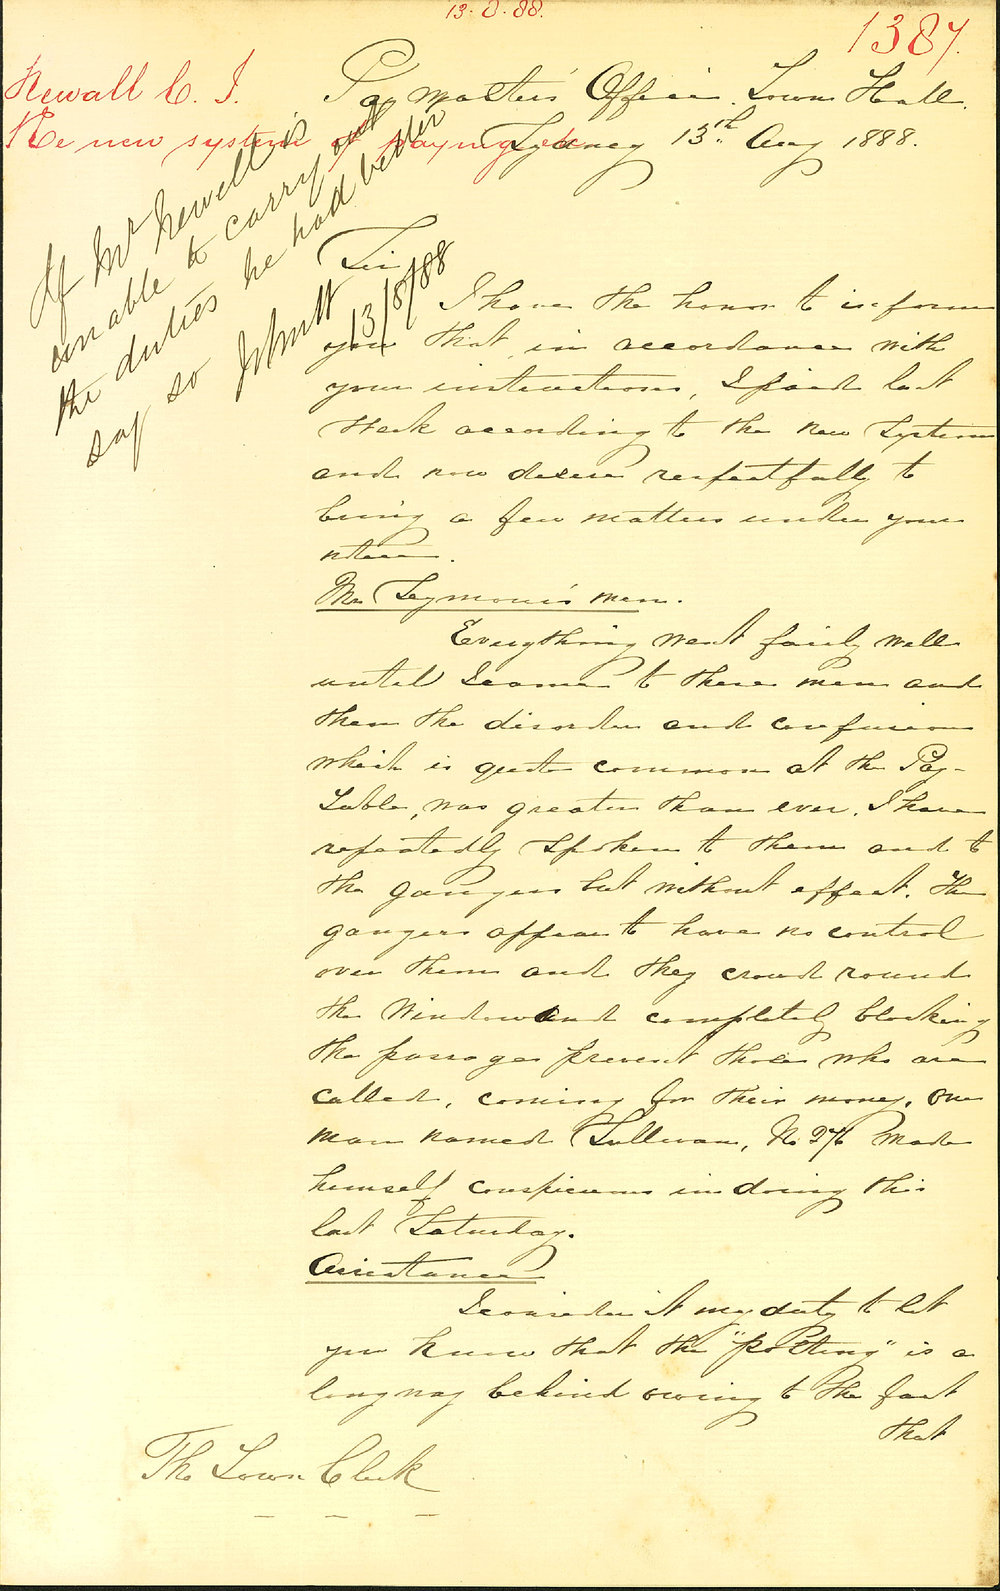 13.8.88.
1387.
Newall C. J.
Re new system of paying
Paymaster's Office. Town Hall.
Sydney 13th. Aug 1888.
If Mr Newell is
unable to carry out
the duties he had better
say so
13/8/88
Sir
I have the honor to inform
you that, in accordance with
your instructions, I paid last
Week according to the new System
and now desire respectfully to
bring a few matters under your
notice.
Mr Seymour's men.
Everything went fairly well
until I came to these men and
then the disorder and confusion
which is quite common at the Pay-
Table, was greater than ever. I have
repeatedly spoken to them and to
the gangers but without effect. The
gangers appear to have no control
over them and they crowd round
the Window and completely blocking
the passage prevent those who are
called, coming for their money. One
man named Sullivan, No 276 made
himself conspicuous in doing this
last Saturday.
Assistance
I consider it my duty to let
you know that the "posting" is a
long way behind owing to the fact
that
The Town Clerk